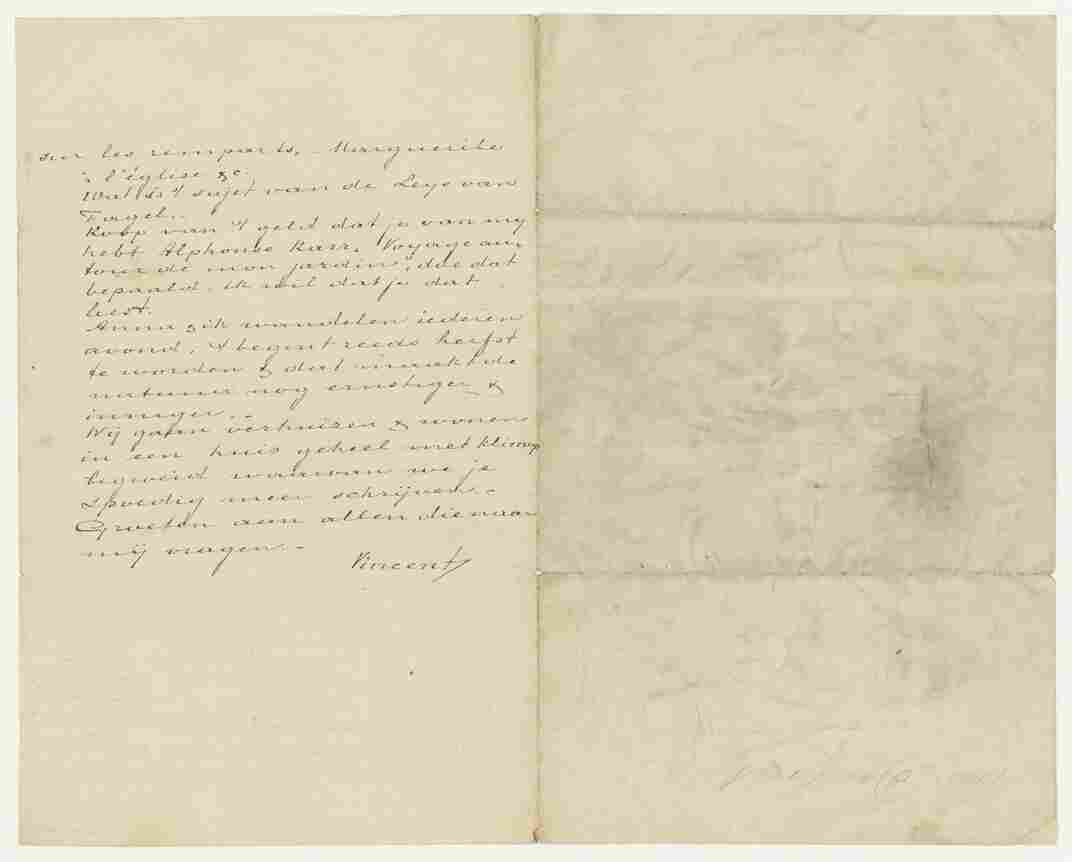 sur les remparts, Marguerite
à l'église &c.
Wat is 't sujet van de Leys van
Fagel.
Koop van 't geld dat je van my
hebt Alphonse Karr, Voyage au-
tour de mon jardin", doe dat
bepaald. ik wil dat je dat
leest.
Anna & ik wandelen iederen
avond, 't begint reeds herfst
te worden & dat maakt de
natuur nog ernstiger &
inniger.
Wij gaan verhuizen & wonen
in een huis geheel met klimop
begroeid waarvan we je
spoedig meer schrijven.
Groeten aan allen die naar
mij vragen. -
Vincent